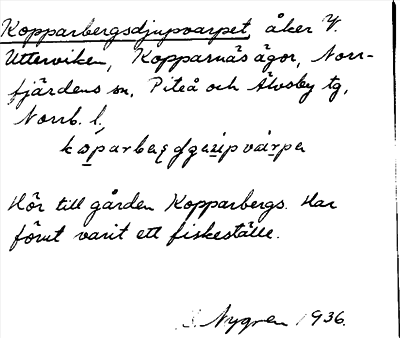 Kopparbergsdjupvarpet, åker V.
Utterviken, Kopparnäs ägor, Norr-
fjärdens sn, Piteå och Älvsby tg,
Norrb. l.
Hör till gården Kopparbergs. Har
förut varit ett fiskeställe.
Nygren 1936.